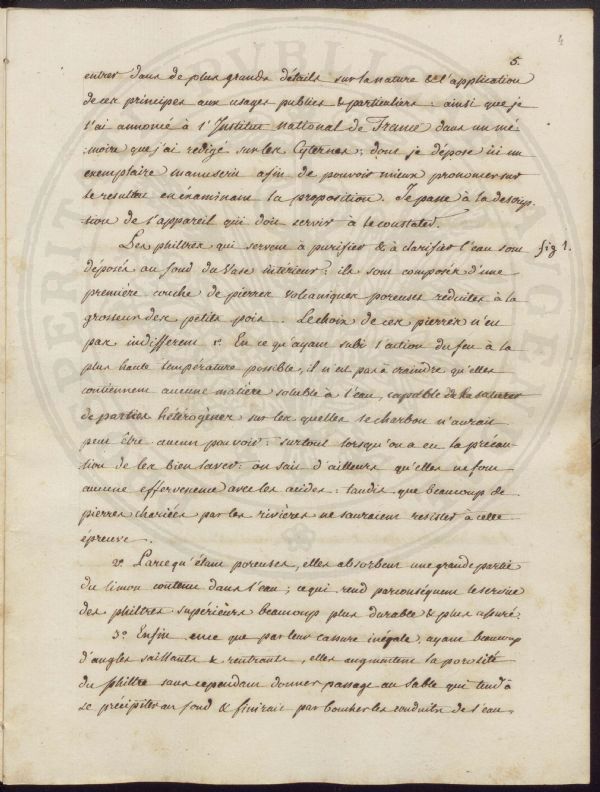 4
5.
entrer dans de plus grands détails sur la nature & l'application
de ces principes aux usages publics & particuliers : ainsi que je
l'ai annoncé à l'Institut national de France dans un mé
:moire que j'ai redigé sur les Cyternes ; dont je dépose ici un
exemplaire manuscrit afin de pouvoir mieux prononcer sur
le resultat en examinant la proposition. Je passe à la descrip
:tion de l'appareil qui doit servir à le constater.
Les philtres qui servent à purifier & à clarifier l'eau sont
fig 1.
déposés au fond du Vase intérieur : ils sont composés d'une
première couche de pierres Volcaniques poreuses réduites à la
grosseur des petits pois. Le choix de ces pierres n'est
pas indifferent 1º. En ce qu'ayant subi l'action du feu à la
plus haute température possible, il n'est pas à craindre qu'elles
contiennent aucune matière soluble à l'eau, capable de la saturer
de parties hétérogènes sur les quelles le charbon n'aurait
peut être aucun pouvoir : surtout lorsqu'on a eu la précau
:tion de les bien laver : on sait d'ailleurs qu'elles ne font
aucune effervescence avec les acides : tandis que beaucoup de
pierres chariées par les rivières ne sauraient resister à cette
épreuve.
2º. Parce qu'étant poreuses, elles absorbent une grande partie
du limon contenu dans l'eau ; ce qui rend par conséquent le service
des philtres supérieurs beaucoup plus durable & plus assuré.
3º. Enfin, en ce que par leur cassure inégale, ayant beaucoup
d'angles saillants & rentrants, elles augmentent la porosité
du philtre sans cependant donner passage au sable qui tend à
se précipiter au fond & finirait par boucher les conduits de l'eau.